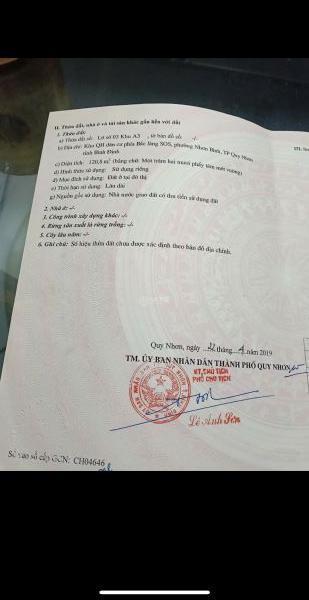 II. Thửa đất, nhà ở và tài sản khác gắn liền với đất
1. Thửa đất:
a) Thửa đất số: Lô số 03 Khu A3 , tờ bản đồ số: -/-
b) Địa chỉ: Khu QH dân cư phía Bắc làng SOS, phường Nhơn Bình, TP Quy Nhơn
tỉnh Bình Định
c) Diện tích: 120,8 m² (bằng chữ: Một trăm hai mươi phẩy tám mét vuông)
d) Hình thức sử dụng: Sử dụng riêng
đ) Mục đích sử dụng: Đất ở tại đô thị
e) Thời hạn sử dụng: Lâu dài
g) Nguồn gốc sử dụng: Nhà nước giao đất có thu tiền sử dụng đất
2. Nhà ở: -/-
3. Công trình xây dựng khác: -/-
4. Rừng sản xuất là rừng trồng: -/-
5. Cây lâu năm: -/-
6. Ghi chú: Số hiệu thửa đất chưa được xác định theo bản đồ địa chính.
Quy Nhơn, ngày 22 tháng 4 năm 2019
TM. ỦY BAN NHÂN DÂN THÀNH PHỐ QUY NHƠN
KT.CHỦ TỊCH
PHÓ CHỦ TỊCH
Lê Anh Sơn
Số vào sổ cấp GCN: CH04646